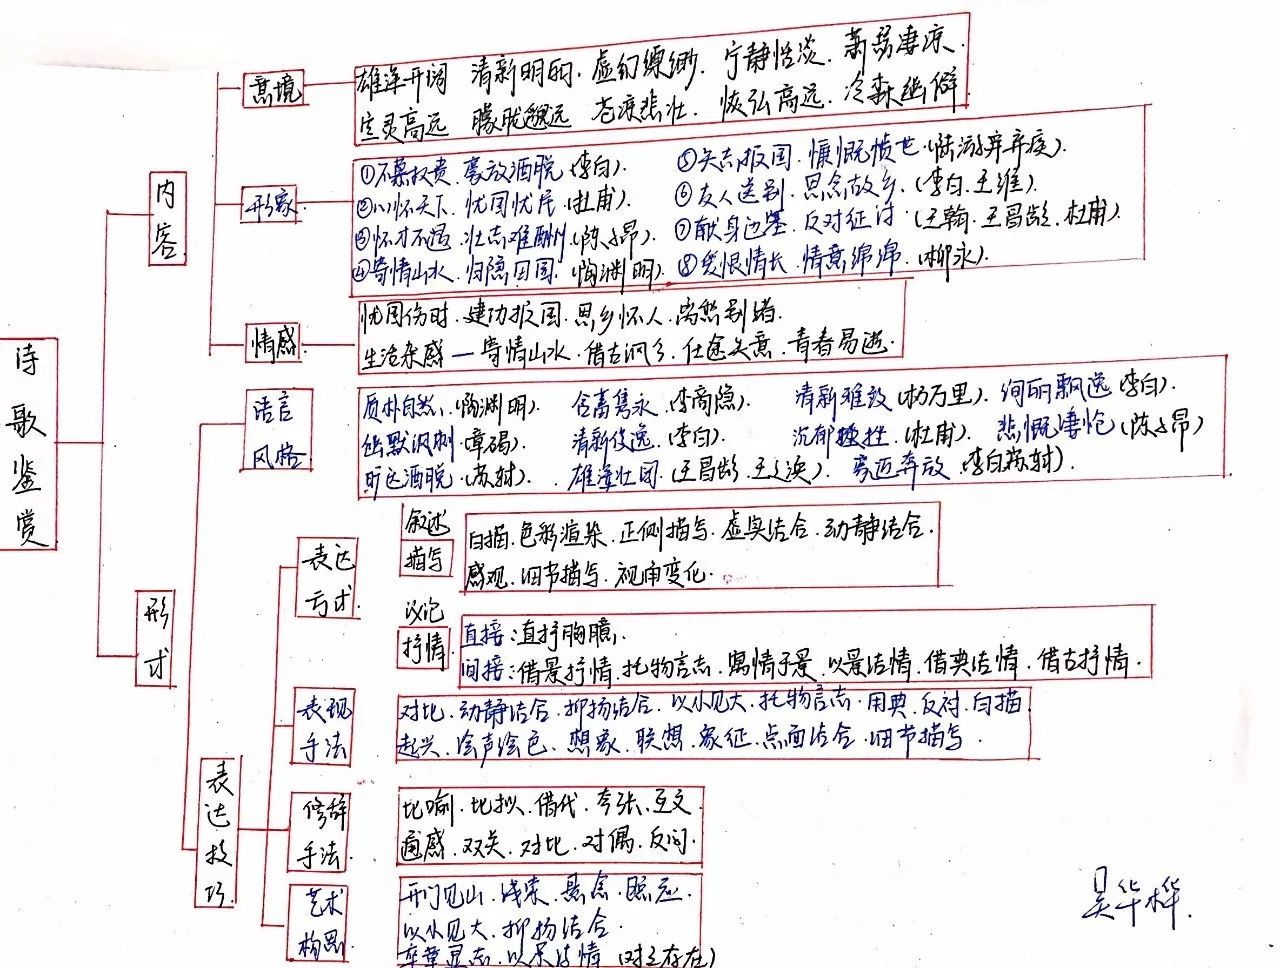 诗歌鉴赏
内容
意境
雄浑开阔 清新明丽. 虚幻缥缈. 宁静恬淡. 萧瑟凄凉.
空灵高远 朦胧 苍凉悲壮. 恢弘高远. 冷森幽僻
形象
①不慕权贵. 豪放洒脱.(李白). ⑤矢志报国. 慷慨愤世.(陆游.辛弃疾).
②心怀天下. 忧国忧民.(杜甫). ⑥友人送别. 思念故乡.(李白.王维).
③怀才不遇. 壮志难酬.(陈子昂). ⑦献身边塞. 反对征讨 (王翰.王昌龄.杜甫)
④寄情山水. 归隐田园.(陶渊明). ⑧爱恨情长. 情意绵绵.(柳永).
情感
忧国伤时. 建功报国. 思乡怀人. 离愁别绪.
生活杂感—寄情山水.借古讽今.仕途失意.青春易逝.
形式
语言风格
质朴自然.(陶渊明). 含蓄隽永.(李商隐). 清新雅致(杨万里). 绚丽飘逸(李白).
幽默讽刺.(章碣). 清新俊逸.(李白). 沉郁顿挫.(杜甫). 悲慨凄怆(陈子昂)
旷达洒脱.(苏轼). 雄浑壮阔.(王昌龄.王之涣). 豪迈奔放.(李白.苏轼).
表达技巧
表达方式.
叙述
描写
白描.色彩渲染.正侧描写.虚实结合.动静结合.
感观.细节描写.视角变化.
议论
抒情
直接:直抒胸臆.
间接:借景抒情.托物言志.寓情于景.以景结情.借典结情.借古抒情.
表现手法
对比.动静结合.抑扬结合.以小见大.托物言志.用典.反衬.白描
起兴.绘声绘色.想象.联想.象征.点面结合.细节描写.
修辞手法.
比喻.比拟.借代.夸张.互文.
通感.双关.对比.对偶.反问.
艺术构思
开门见山.线索.悬念.照应.
以小见大.抑扬结合.
卒章显志.以景结情
吴华桦.